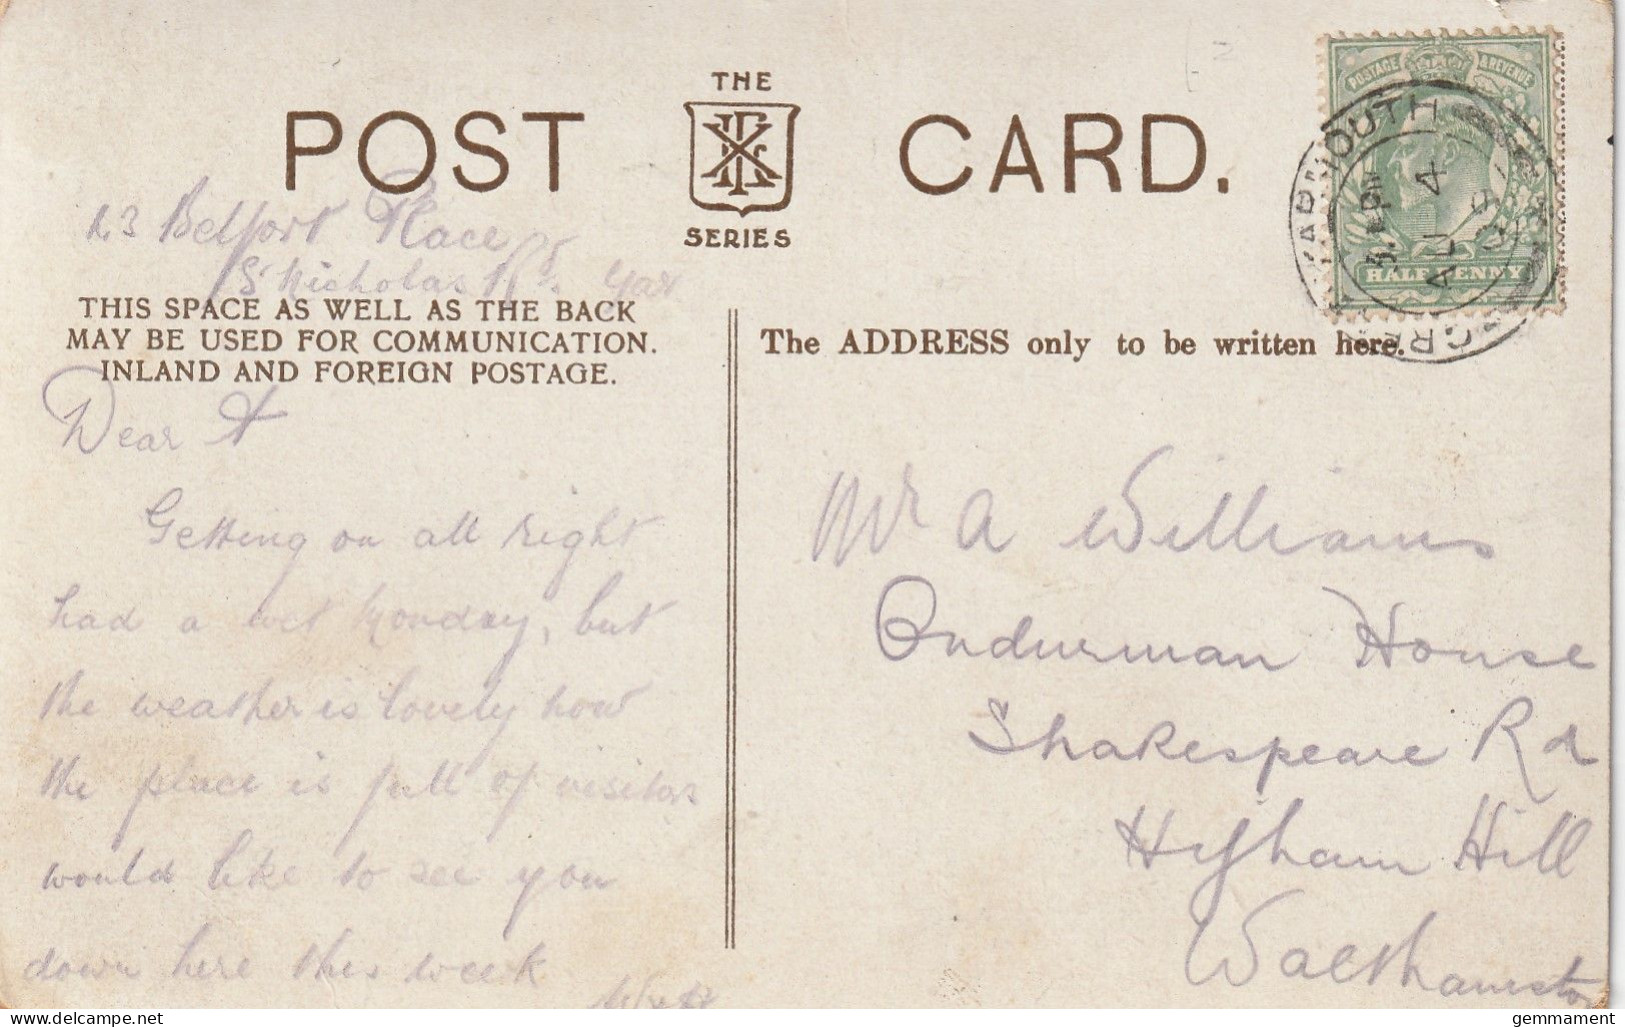 THE
POST CARD.
SERIES
POSTAGE & REVENUE
HALF PENNY
GR YARMOUTH
AU 4
09
Belfort Place
St Nicholas Rd Yar
THIS SPACE AS WELL AS THE BACK
MAY BE USED FOR COMMUNICATION.
INLAND AND FOREIGN POSTAGE.
The ADDRESS only to be written here.
Dear A
Getting on all right
had a wet Monday, but
the weather is lovely now
the place is full of visitors
would like to see you
down here this week
Mr A Williams
Ondurman House
Shakespeare Rd
Higham Hill
Walthamstow
delcampe.net
gemmament